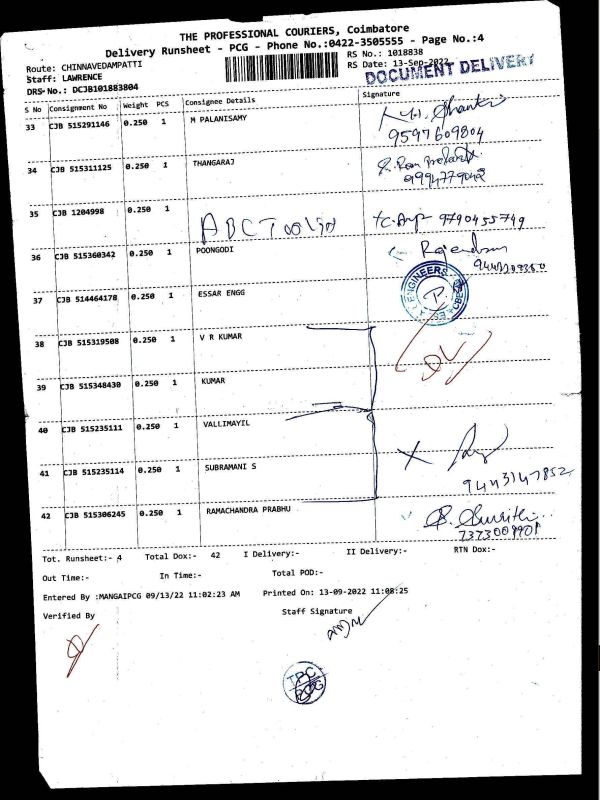 THE PROFESSIONAL COURIERS, Coimbatore
Delivery Runsheet - PCG - Phone No.:0422-3505555 - Page No.:4
Route: CHINNAVEDAMPATTI
RS No.: 1018838
Staff: LAWRENCE
RS Date: 13-Sep-2022
DRS No.: DCJB101883804
DOCUMENT DELIVERY
S No Consignment No Weight PCS Consignee Details Signature
33 CJB 515291146 0.250 1 M PALANISAMY
9597609804
34 CJB 515311125 0.250 1 THANGARAJ
9994779042
35 CJB 1204998 0.250 1 ABC 9790455749
36 CJB 515360342 0.250 1 POONGODI
37 CJB 514464178 0.250 1 ESSAR ENGG
ENGINEERS
38 CJB 515319508 0.250 1 V R KUMAR
39 CJB 515348430 0.250 1 KUMAR
40 CJB 515235111 0.250 1 VALLIMAYIL
41 CJB 515235114 0.250 1 SUBRAMANI S
9443147852
42 CJB 515306245 0.250 1 RAMACHANDRA PRABHU
7373009901
Tot. Runsheet:- 4 Total Dox:- 42 I Delivery:- II Delivery:- RTN Dox:-
Out Time:- In Time:- Total POD:-
Entered By :MANGAIPCG 09/13/22 11:02:23 AM Printed On: 13-09-2022 11:08:25
Verified By Staff Signature